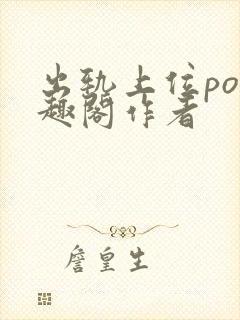 出轨上位po
趣阁作者
詹皇生